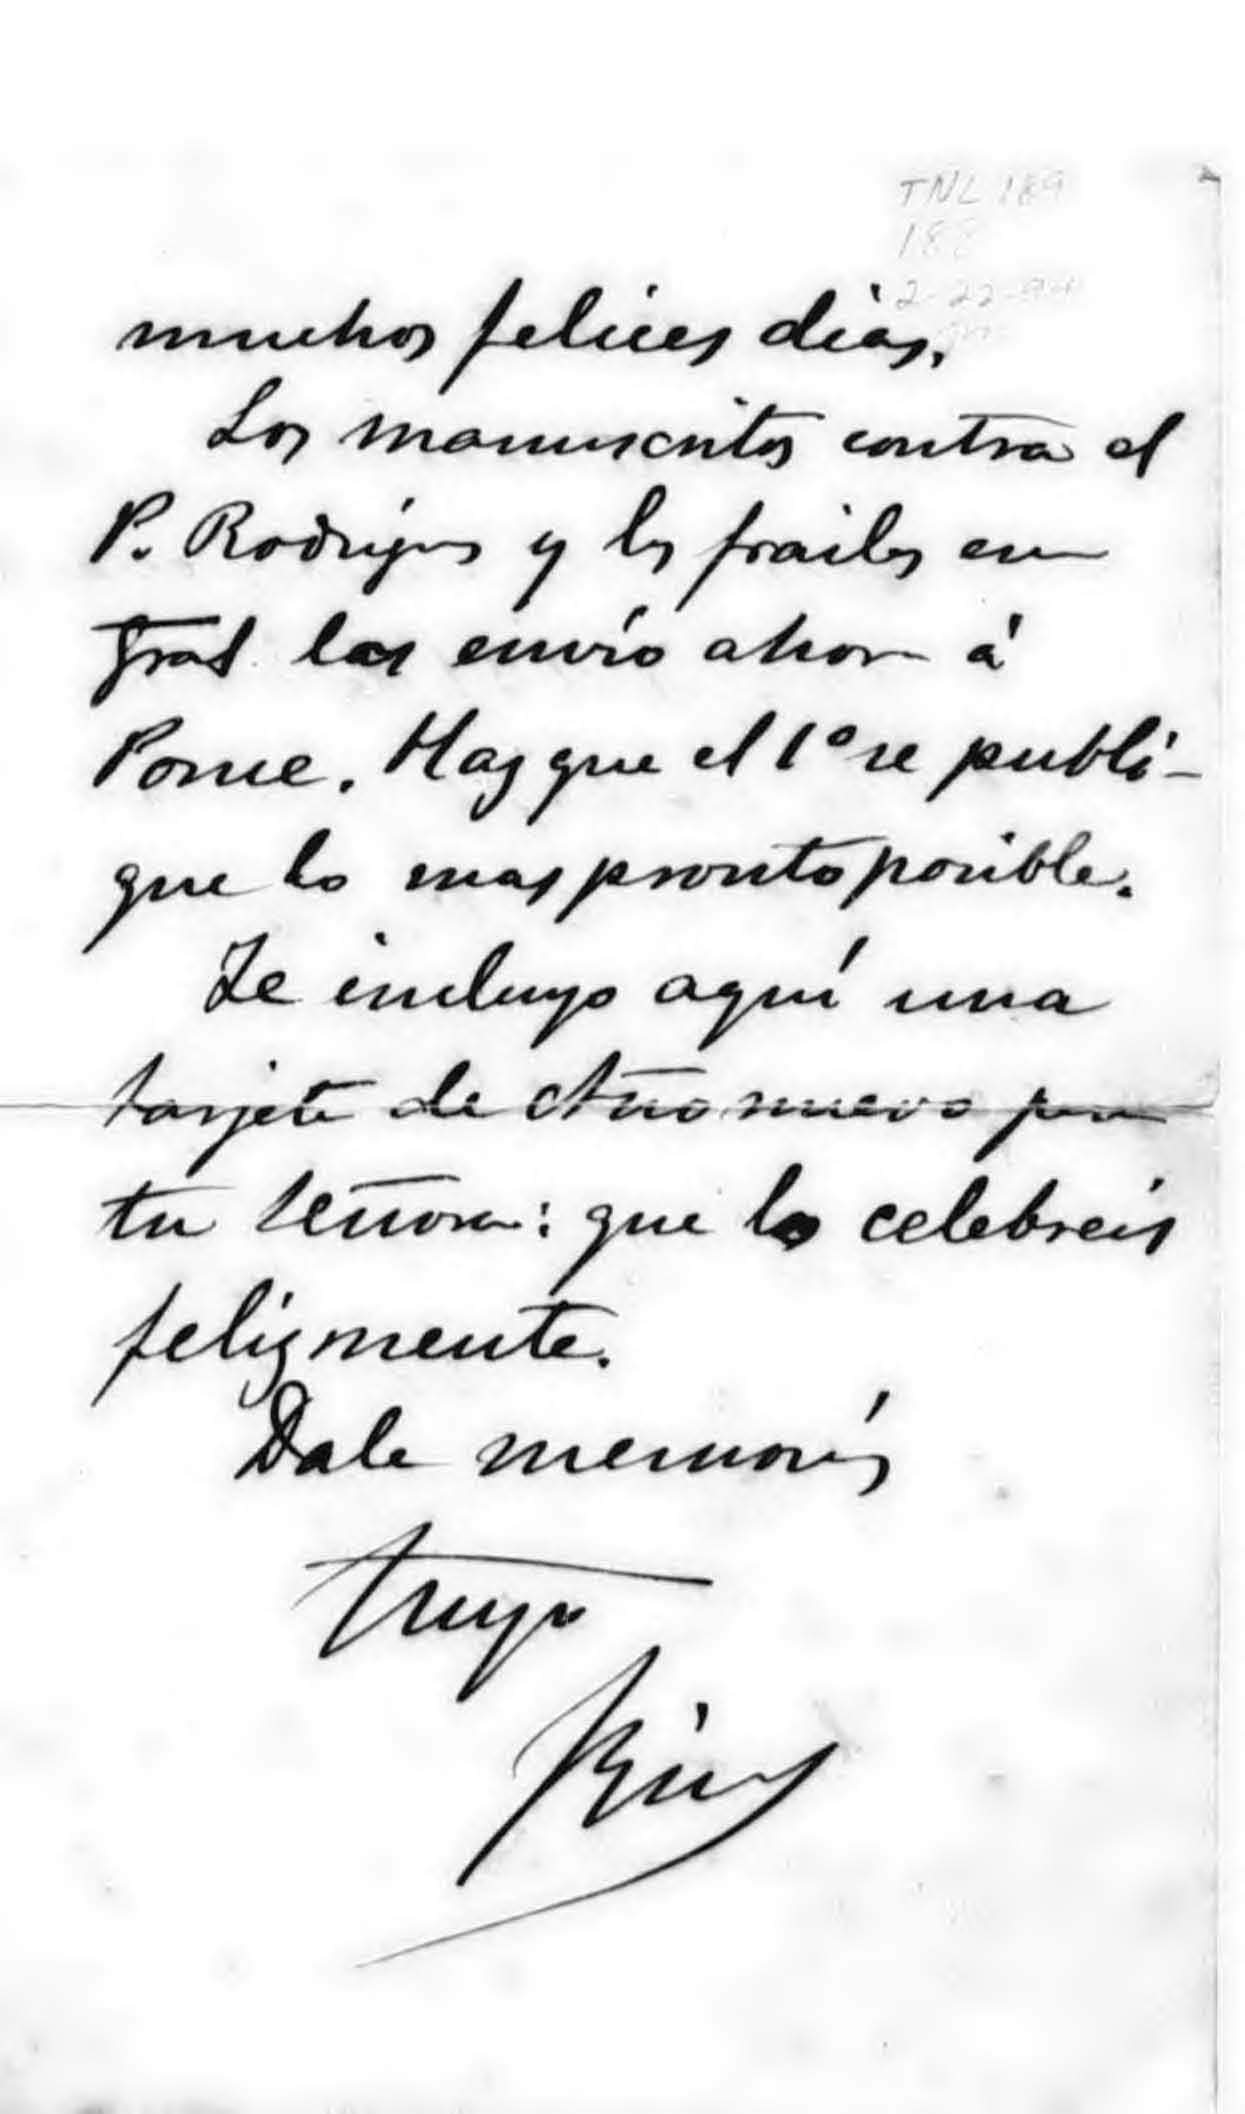 TNL 189
188
2-22-94
muchos felices dias.
Los manuscritos contra el
P. Rodriguez y los frailes en
gral los envío ahora á
Ponce. Haz que el 1º se publi-
que lo mas pronto posible.
Te incluyo aquí una
tarjeta de Año nuevo para
tu señora: que lo celebreis
felizmente.
Dale memorias
tuyo
Rizal